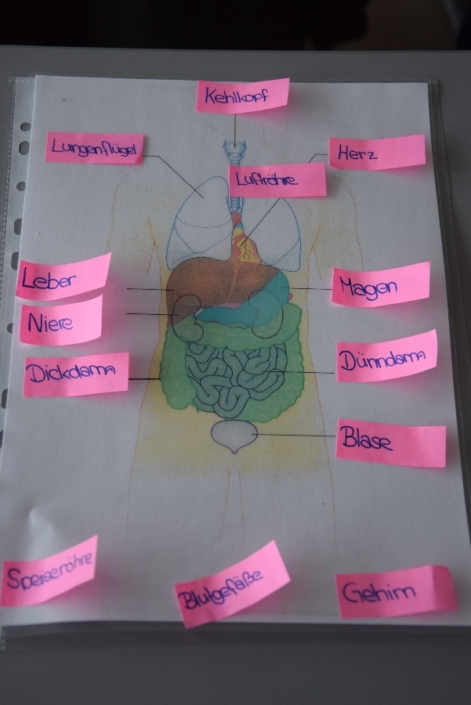 Kehlkopf
Lungenflügel
Herz
Luftröhre
Leber
Magen
Niere
Dickdarm
Dünndarm
Blase
Speiseröhre
Blutgefäße
Gehirn